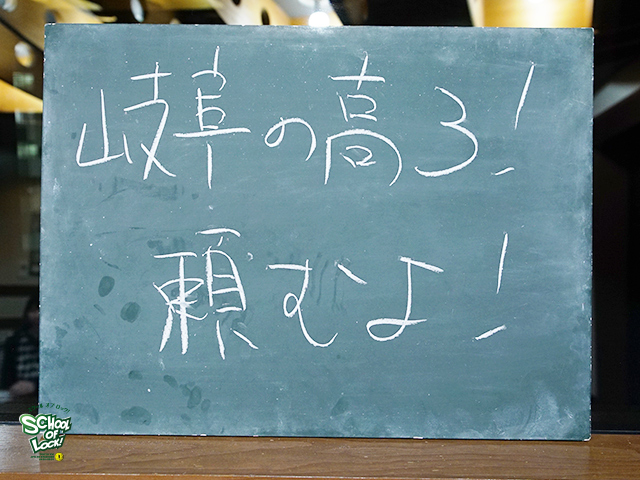 岐阜の高ろ!
頼むよ!
SCHOOL
OF
LOCK!